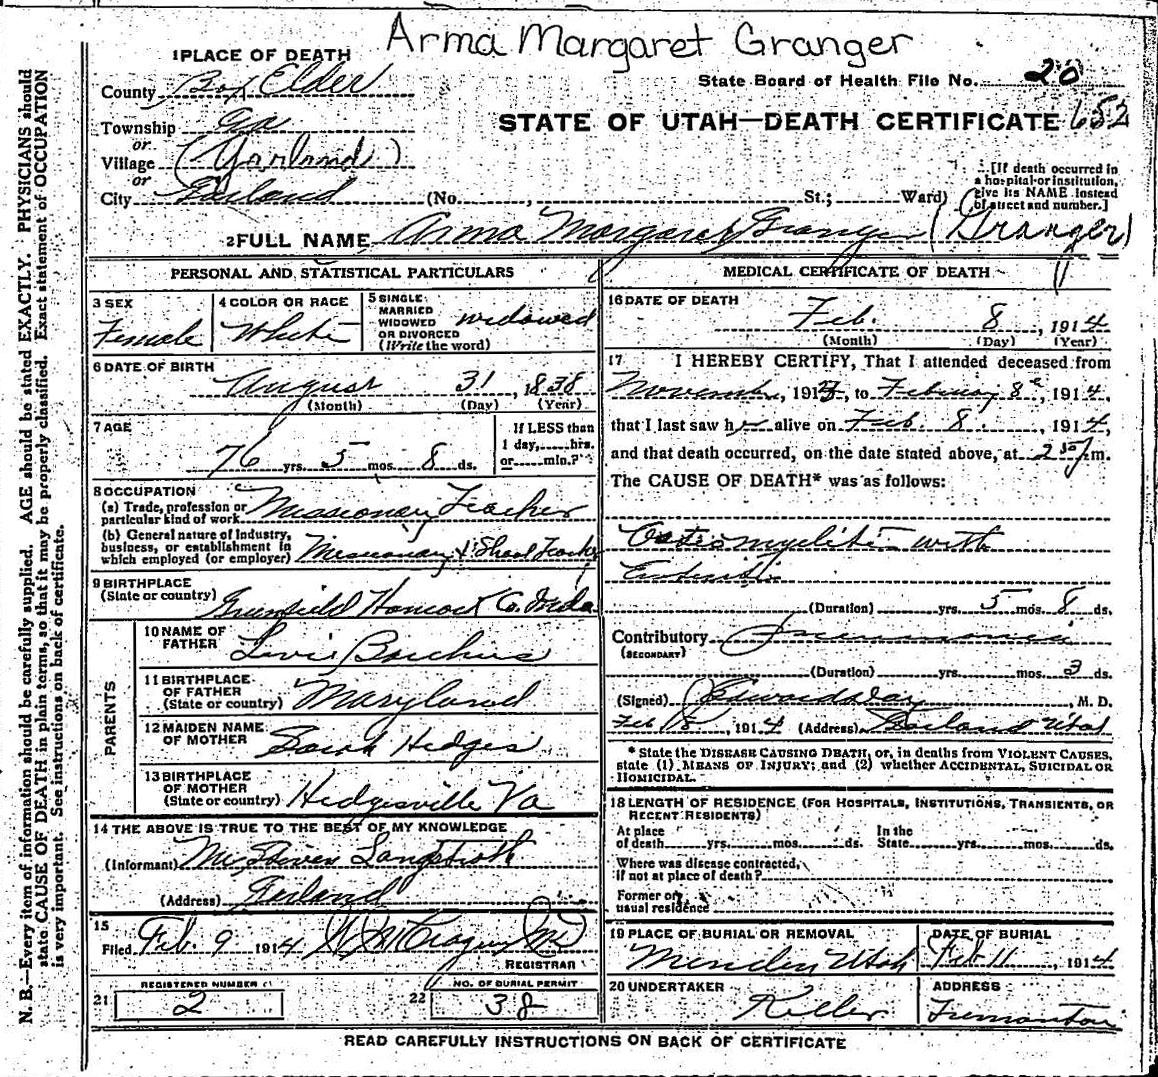 Arma Margaret Granger
1 PLACE OF DEATH
State Board of Health File No. 20
County Box Elder
STATE OF UTAH—DEATH CERTIFICATE 652
Township
or
Village (Garland)
or
City Garland (No. St.; Ward)
[If death occurred in a hospital or institution, give its NAME instead of street and number.]
2 FULL NAME Arma Margaret Granger (Granger)
PERSONAL AND STATISTICAL PARTICULARS
3 SEX
Female
4 COLOR OR RACE
White
5 SINGLE
MARRIED
WIDOWED
OR DIVORCED
(Write the word)
widowed
6 DATE OF BIRTH
August 31, 1838
(Month) (Day) (Year)
7 AGE
76 yrs. 5 mos. 8 ds.
If LESS than
1 day, hrs.
or min.?
8 OCCUPATION
(a) Trade, profession or
particular kind of work Missionary Teacher
(b) General nature of Industry,
business, or establishment in
which employed (or employer) Missionary & School Teacher
9 BIRTHPLACE
(State or country) Greenfield Hancock Co. Inda.
PARENTS
10 NAME OF
FATHER
11 BIRTHPLACE
OF FATHER
(State or country) Maryland
12 MAIDEN NAME
OF MOTHER Sarah Hedges
13 BIRTHPLACE
OF MOTHER
(State or country) Hedgesville Va
14 THE ABOVE IS TRUE TO THE BEST OF MY KNOWLEDGE
(Informant) Langstroth
(Address) Garland
15
Filed Feb. 9 1914
REGISTRAR
REGISTERED NUMBER
21 2
NO. OF BURIAL PERMIT
22 38
MEDICAL CERTIFICATE OF DEATH
16 DATE OF DEATH
Feb. 8, 1914
(Month) (Day) (Year)
17 I HEREBY CERTIFY, That I attended deceased from
November, 1913, to February 8, 1914,
that I last saw her alive on Feb. 8, 1914,
and that death occurred, on the date stated above, at m.
The CAUSE OF DEATH* was as follows:
Osteomyelitis with
(Duration) yrs. 5 mos. 8 ds.
Contributory Pneumonia
(SECONDARY)
(Duration) yrs. mos. 3 ds.
(Signed) , M. D.
Feb 8, 1914 (Address) Garland Utah
* State the DISEASE CAUSING DEATH, or, in deaths from VIOLENT CAUSES,
state (1) MEANS OF INJURY; and (2) whether ACCIDENTAL, SUICIDAL OR
HOMICIDAL.
18 LENGTH OF RESIDENCE (FOR HOSPITALS, INSTITUTIONS, TRANSIENTS, OR
RECENT RESIDENTS)
At place
of death yrs. mos. ds.
In the
State yrs. mos. ds.
Where was disease contracted,
if not at place of death?
Former or
usual residence
19 PLACE OF BURIAL OR REMOVAL
Mendon Utah
DATE OF BURIAL
Feb 11, 1914
20 UNDERTAKER
Keller
ADDRESS
Tremonton
READ CAREFULLY INSTRUCTIONS ON BACK OF CERTIFICATE
N. B.—Every item of information should be carefully supplied. AGE should be stated EXACTLY. PHYSICIANS should
state CAUSE OF DEATH in plain terms, so that it may be properly classified. Exact statement of OCCUPATION
is very important. See instructions on back of certificate.